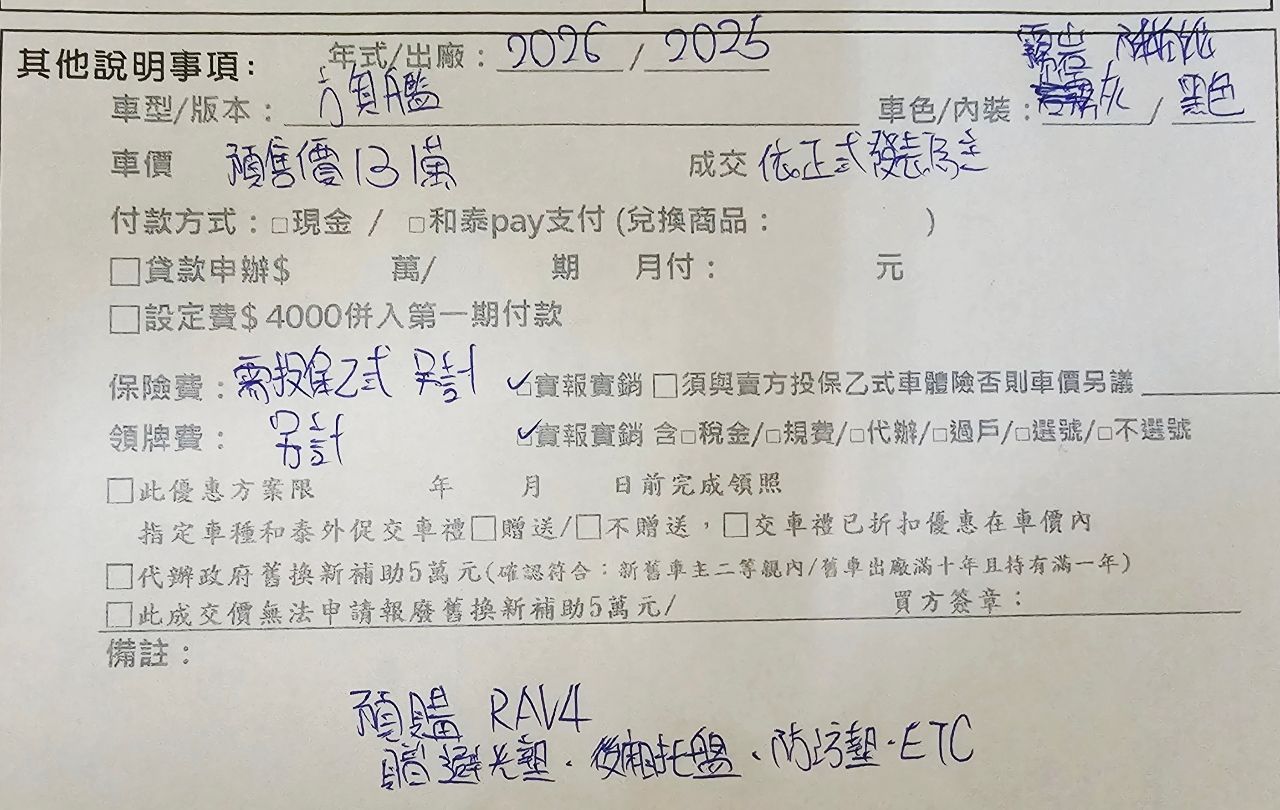 其他說明事項：
年式/出廠：2026 / 2025
霧岩
車型/版本： 旗艦
車色/內裝：灰 / 黑色
車價 預售價131萬 成交 依正式發表為主
付款方式：□現金 / □和泰pay支付 (兌換商品： )
□貸款申辦$ 萬/ 期 月付： 元
□設定費$4000併入第一期付款
保險費：需投保乙式 另計 ☑實報實銷 □須與賣方投保乙式車體險否則車價另議
領牌費： 另計 ☑實報實銷 含□稅金/□規費/□代辦/□過戶/□選號/□不選號
□此優惠方案限 年 月 日前完成領照
指定車種和泰外促交車禮□贈送/□不贈送，□交車禮已折扣優惠在車價內
□代辦政府舊換新補助5萬元(確認符合：新舊車主二等親內/舊車出廠滿十年且持有滿一年)
□此成交價無法申請報廢舊換新補助5萬元/ 買方簽章：
備註：
預購 RAV4
贈避光墊．後廂托盤．防污墊．ETC